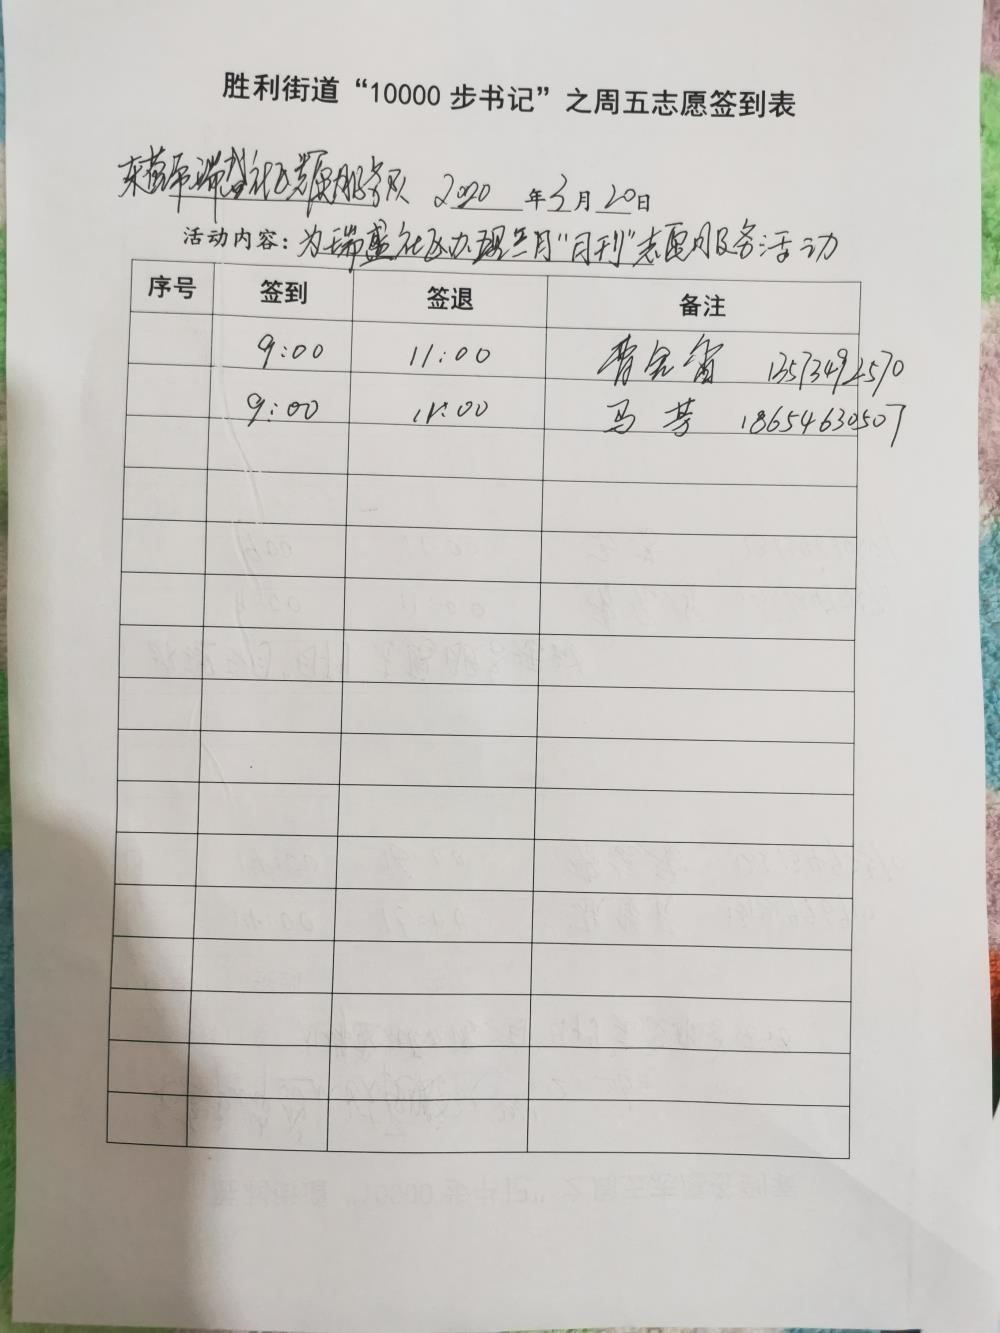 胜利街道“10000步书记”之周五志愿签到表
社区志愿服务队 2020年3月20日
活动内容：为瑞盛社区办理三月“月刊”志愿服务活动
序号 签到 签退 备注
9:00 11:00 13573492570
9:00 11:00 马芳 18654630507